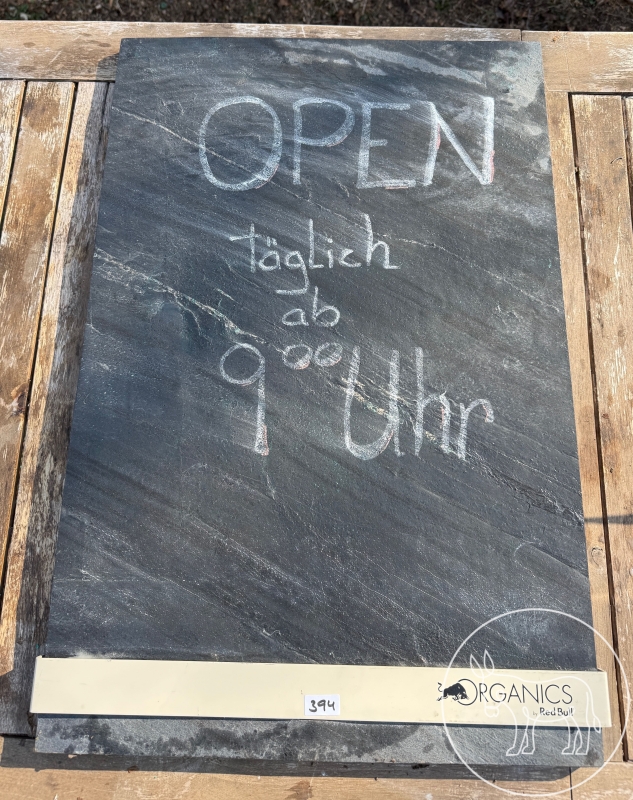 OPEN
täglich
ab
9⁰⁰ Uhr
394
ORGANICS
by Red Bull